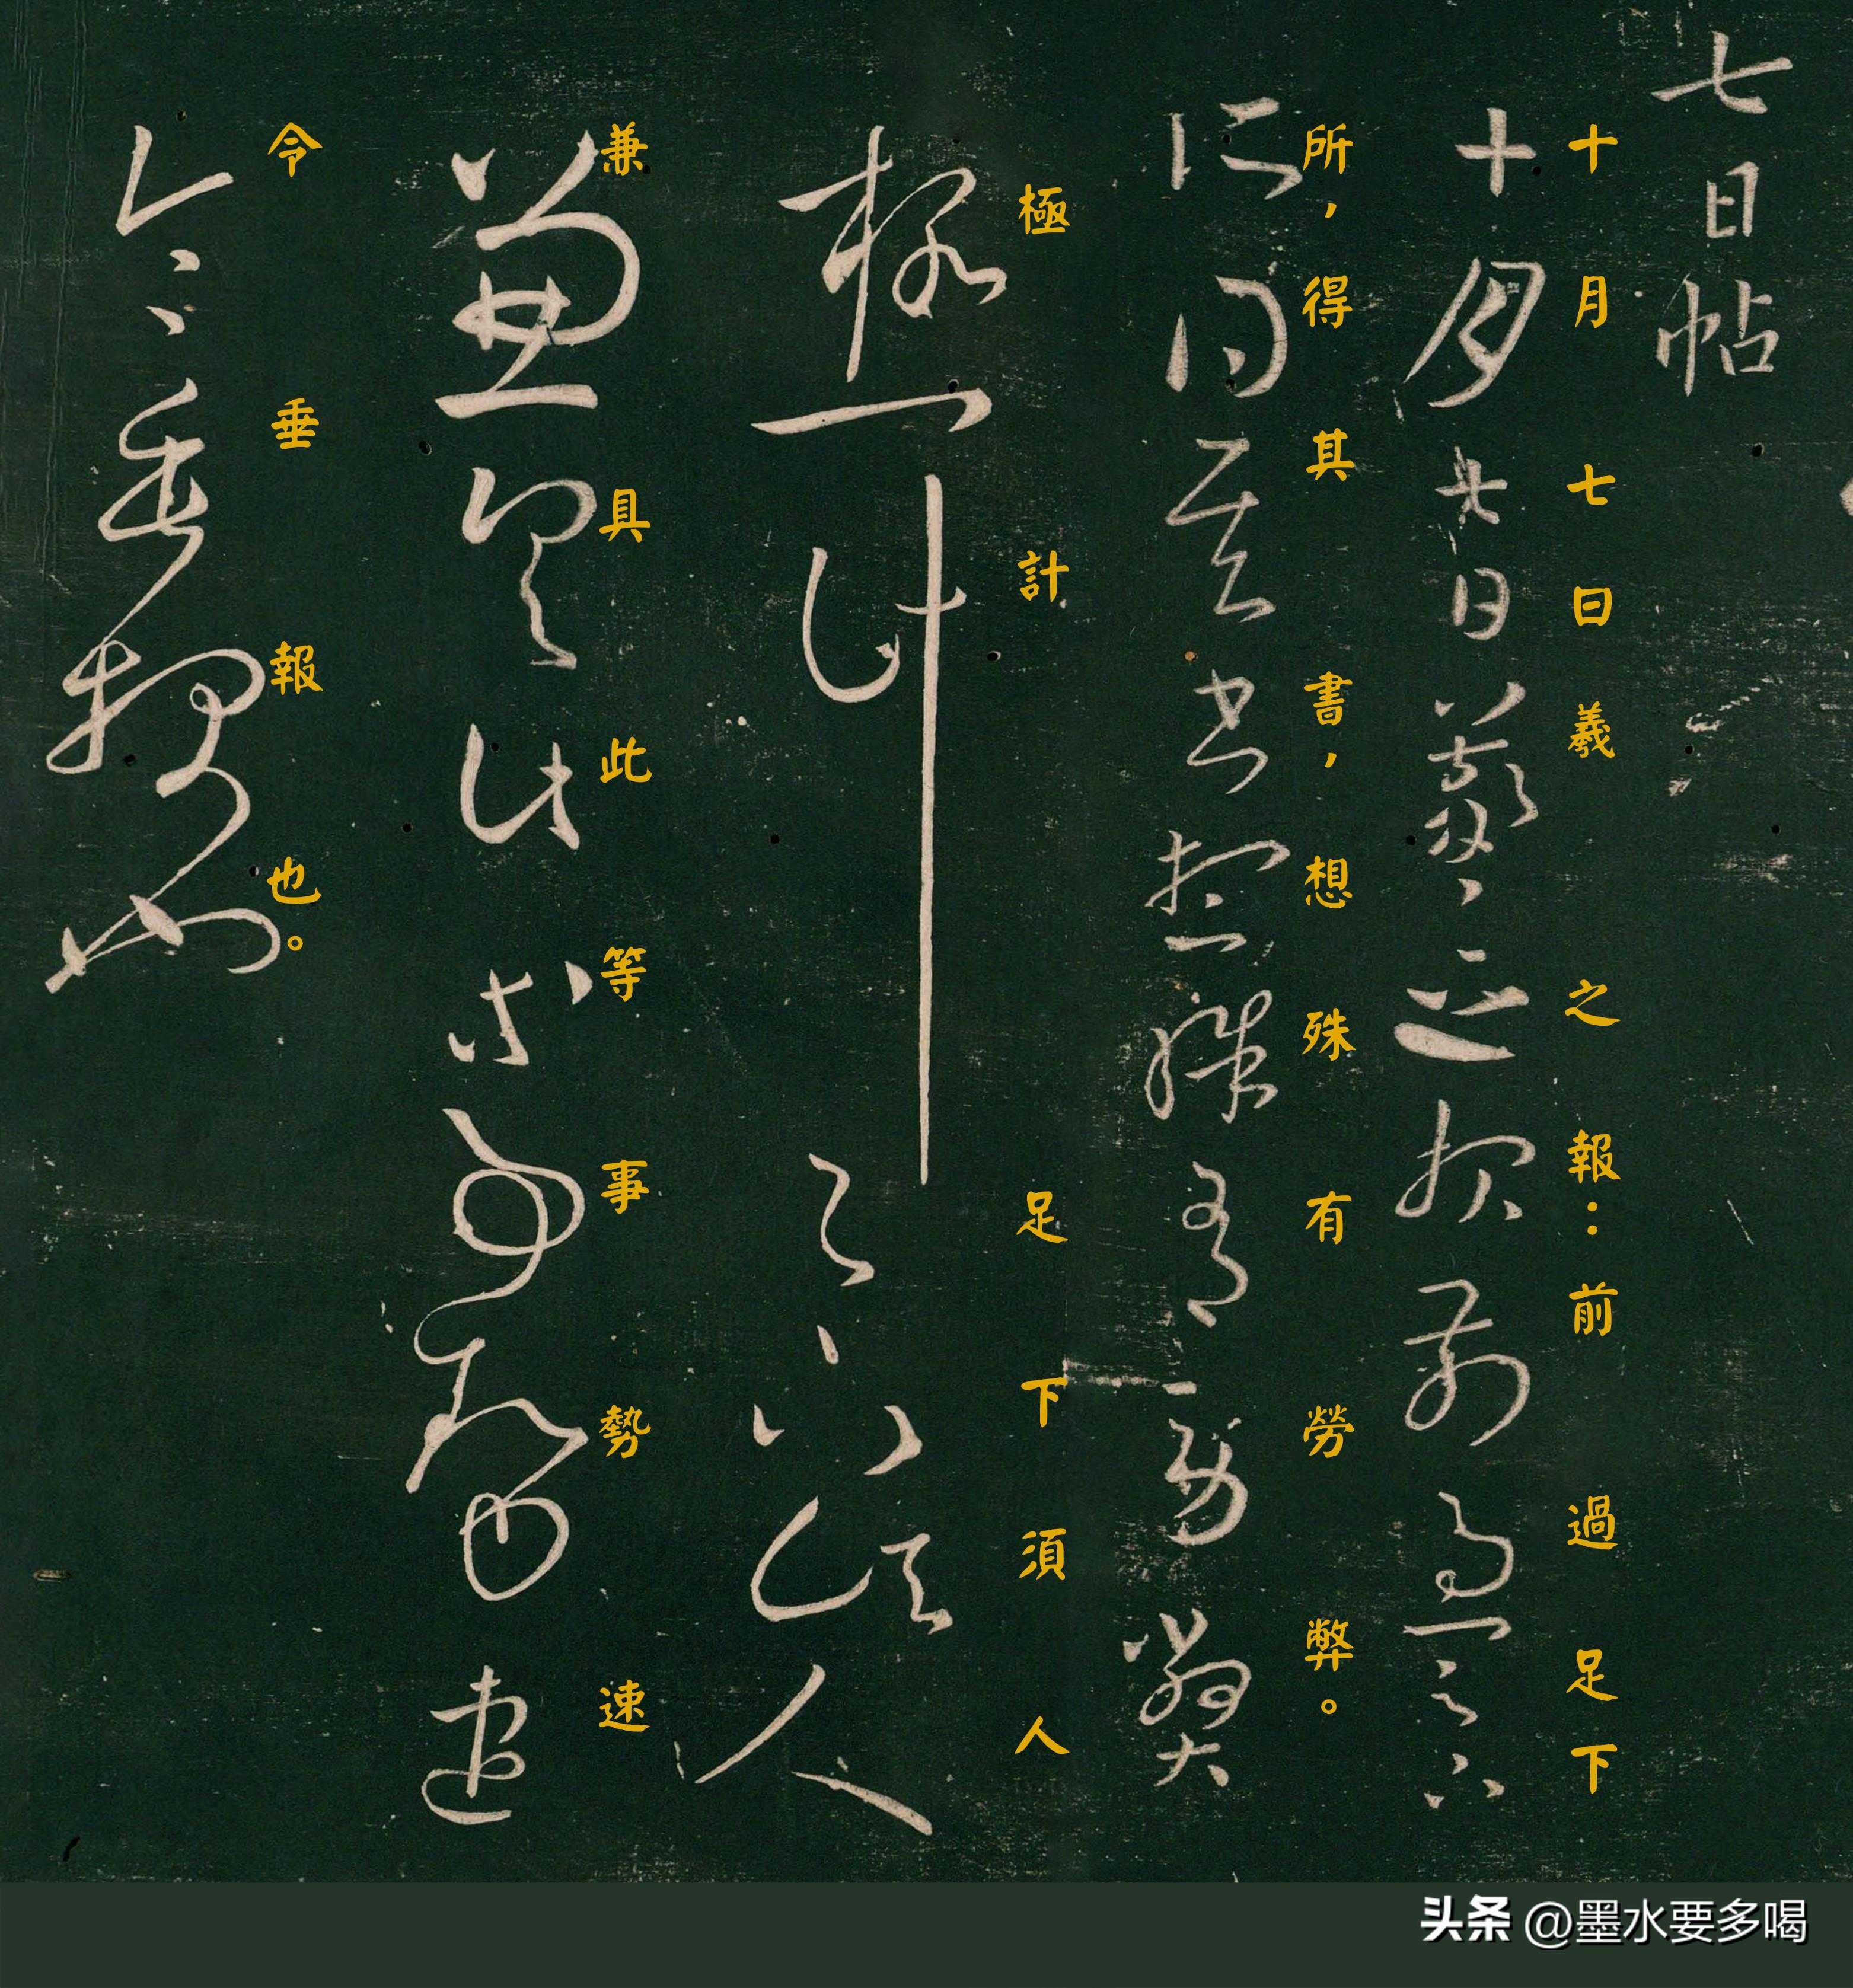 七日帖
十月七日羲之報：前過足下
所，得其書，想殊有勞弊。
極計足下須人
兼具此等事勢速
令垂報也。
头条 @墨水要多喝